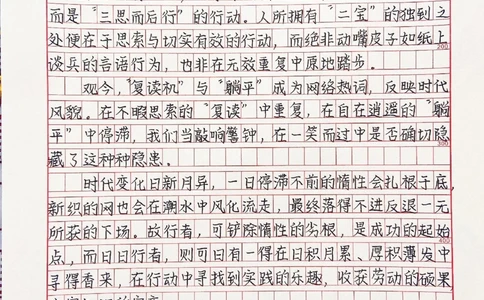 而是“三思而后行”的行动。人所拥有“二宝”的独到之
处便在于思索与切实有效的行动，而绝非动嘴皮子如纸上
200
谈兵的言语行为，也非在无效重复中原地踏步。
观今，“复读机”与“躺平”成为网络热词，反映时代
风貌。在不暇思索的“复读”中重复，在自在逍遥的“躺
平”中停滞，我们当敲响警钟，在一笑而过中是否确切隐
300
藏了这种种隐患。
时代变化日新月异，一日停滞不前的惰性会扎根于底，
新织的网也会在潮水中风化流走，最终落得不进反退一无
所获的下场。故行者，可铲除惰性的劣根，是成功的起始
400
点，而日日行者，则可日有一得在日积月累、厚积薄发中
寻得香来，在行动中寻找到实践的乐趣，收获劳动的硕果